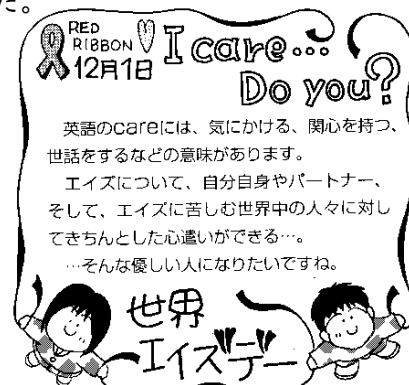 た。
RED
RIBBON
12月1日
I care…
Do you?
英語のcareには、気にかける、関心を持つ、
世話をするなどの意味があります。
エイズについて、自分自身やパートナー、
そして、エイズに苦しむ世界中の人々に対し
てきちんとした心遣いができる…。
…そんな優しい人になりたいですね。
世界
エイズデー